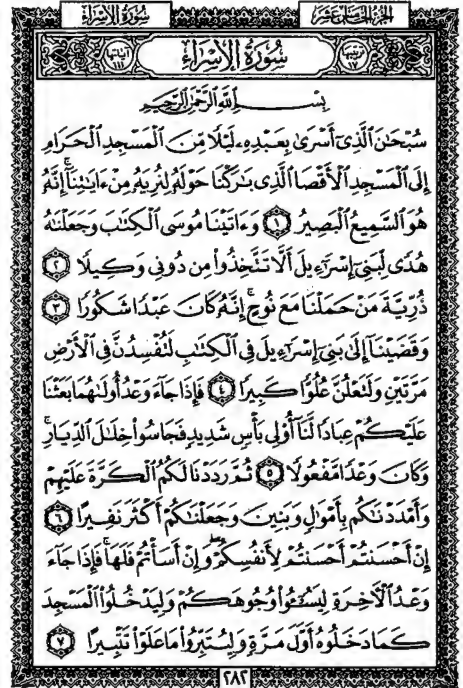 سُورَةُ الإِسْرَاءِ
الجُزْءُ الخَامِسَ عَشَرَ
ترتيبها ١٧
سُورَةُ الإِسْرَاءِ
آياتها ١١١
بِسْمِ ٱللَّهِ ٱلرَّحْمَٰنِ ٱلرَّحِيمِ
سُبْحَٰنَ ٱلَّذِىٓ أَسْرَىٰ بِعَبْدِهِۦ لَيْلًا مِّنَ ٱلْمَسْجِدِ ٱلْحَرَامِ
إِلَى ٱلْمَسْجِدِ ٱلْأَقْصَا ٱلَّذِى بَٰرَكْنَا حَوْلَهُۥ لِنُرِيَهُۥ مِنْ ءَايَٰتِنَآ ۚ إِنَّهُۥ
هُوَ ٱلسَّمِيعُ ٱلْبَصِيرُ ١ وَءَاتَيْنَا مُوسَى ٱلْكِتَٰبَ وَجَعَلْنَٰهُ
هُدًى لِّبَنِىٓ إِسْرَٰٓءِيلَ أَلَّا تَتَّخِذُوا۟ مِن دُونِى وَكِيلًا ٢
ذُرِّيَّةَ مَنْ حَمَلْنَا مَعَ نُوحٍ ۚ إِنَّهُۥ كَانَ عَبْدًا شَكُورًا ٣
وَقَضَيْنَآ إِلَىٰ بَنِىٓ إِسْرَٰٓءِيلَ فِى ٱلْكِتَٰبِ لَتُفْسِدُنَّ فِى ٱلْأَرْضِ
مَرَّتَيْنِ وَلَتَعْلُنَّ عُلُوًّا كَبِيرًا ٤ فَإِذَا جَآءَ وَعْدُ أُولَىٰهُمَا بَعَثْنَا
عَلَيْكُمْ عِبَادًا لَّنَآ أُو۟لِى بَأْسٍ شَدِيدٍ فَجَاسُوا۟ خِلَٰلَ ٱلدِّيَارِ ۚ
وَكَانَ وَعْدًا مَّفْعُولًا ٥ ثُمَّ رَدَدْنَا لَكُمُ ٱلْكَرَّةَ عَلَيْهِمْ
وَأَمْدَدْنَٰكُم بِأَمْوَٰلٍ وَبَنِينَ وَجَعَلْنَٰكُمْ أَكْثَرَ نَفِيرًا ٦
إِنْ أَحْسَنتُمْ أَحْسَنتُمْ لِأَنفُسِكُمْ ۖ وَإِنْ أَسَأْتُمْ فَلَهَا ۚ فَإِذَا جَآءَ
وَعْدُ ٱلْءَاخِرَةِ لِيَسُۥٓـُٔوا۟ وُجُوهَكُمْ وَلِيَدْخُلُوا۟ ٱلْمَسْجِدَ
كَمَا دَخَلُوهُ أَوَّلَ مَرَّةٍ وَلِيُتَبِّرُوا۟ مَا عَلَوْا۟ تَتْبِيرًا ٧
٢٨٢